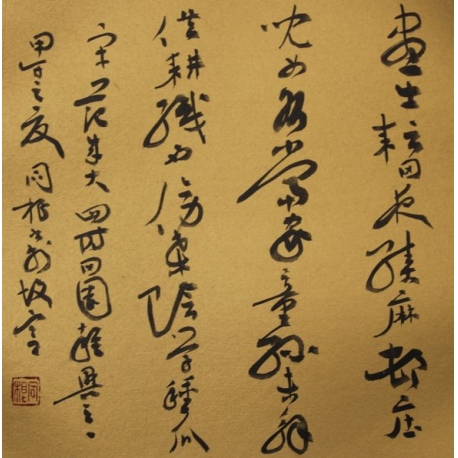 晝出耘田夜績麻邨庄
児女各當家童孫未解
供耕織也傍桑陰學種瓜
宋范成大四時田園雜興之一
甲午之夏